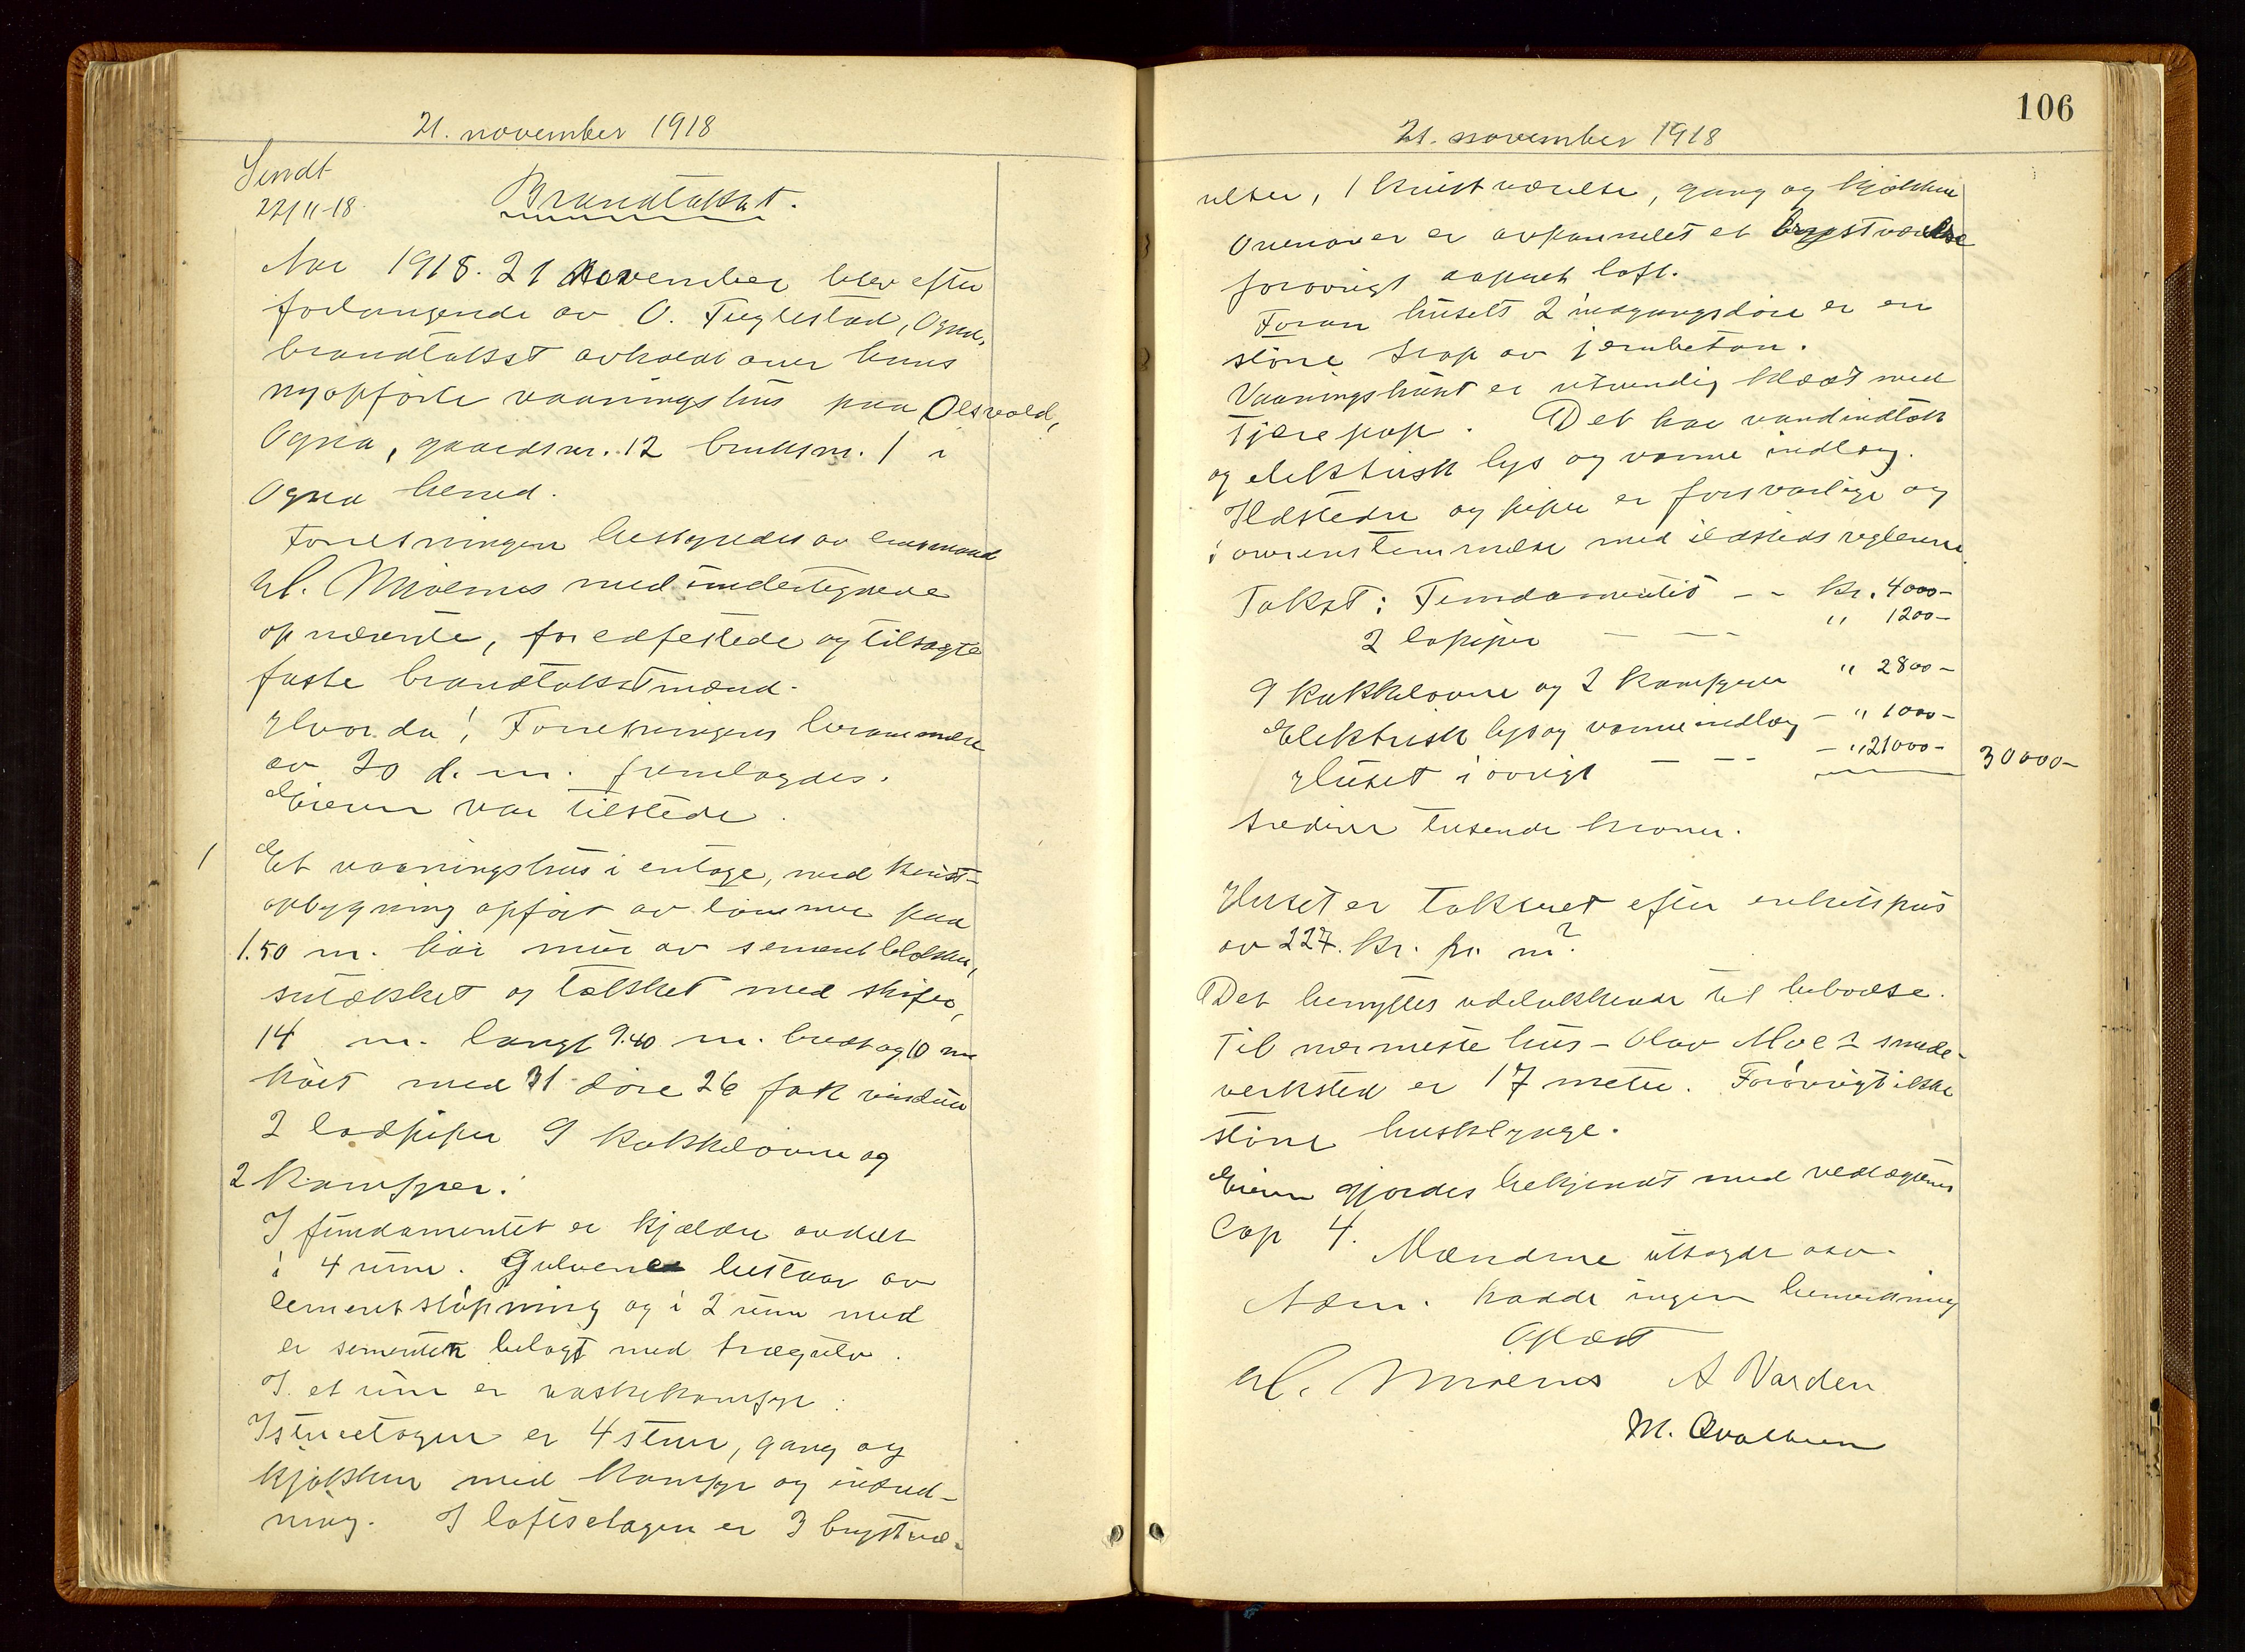 21. november 1918
Sendt
22/11-18.
Brandtakst.
Aar 1918. 21 november blev efter
forlangende av O. Fuglestad, Ogna,
brandtakst avholdt over hans
nyopførte vaaningshus paa Olsvold,
Ogna, gaardsnr. 12 bruksnr. 1 i
Ogna herred.
Forretningen bestyredes av lensmand
med undertegnede
opnævnte, foredfestede og tilsagte
faste brandtakstmænd.
Hvorda! Forretningens berammelse
av 20 d. m. fremlagdes.
Eieren var tilstede.
1 Et vaaningshus i en tage, med kvist-
opbygning opført av tømmer paa
1.50 m. høi mur av sementblokker,
og tækket med skifer,
14 m. langt 9.40 m. bredt og 10 m
høit med 21 døre 26 fak vinduer
2 ladpiper 9 kakkelovne og
2 komfyrer.
I fundamentet er kjælder avdelt
i 4 rum. Gulvene bestaar av
cementstøpning og i 2 rum med
er sementen belagt med trægulv.
I et rum er vaskekomfyr.
I stueetagen er 4 stuer, gang og
kjøkken med komfyr og indred-
ning. I loftsetagen er 3 brystvæ-
106
21. november 1918
relser, 1 kvistværelse, gang og kjøkken
Ovenover er avpannelet et brystværelse
forøvrigt aapent loft.
Foran husets 2 indgangsdøre er en
større trap av jernbeton.
Vaaningshuset er utvendig klædt med
tjærepap. Det har vandindtak
og elektrisk lys og varme indlæg.
Ildsteder og piper er forsvarlige og
i overenstemmelse med ildstedsreglerne.
Takst: Fundamentet - - Kr. 4000-
2 lapiper - - - " 1200-
9 kakkelovne og 2 komfyrer " 2800-
Elektrisk lys og varme indlæg - " 1000-
Huset i øvrigt - - - - " 21000- 30000-
tredive tusende kroner.
Huset er takseret efter enhetspris
av 227. Kr. pr. m².
Det benyttes udelukkende til beboelse.
Til nærmeste hus - Olav Moe's smede-
verksted er 17 meter. Forøvrigt ikke
større husklynge.
Eieren gjordes bekjendt med vedtægtenes
Cap 4. Mændene utsagde osv.
hadde ingen bemerkning
Oplæst
A Varden
M. Qvalbein